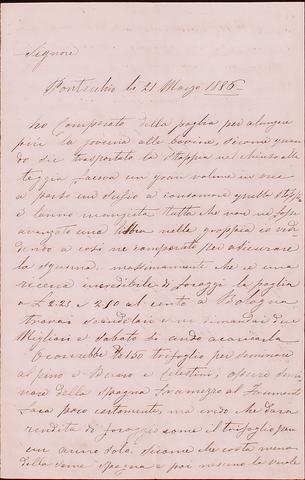 Signore
Pontecchio li 21 Marzo 1886
ho Comperato della paglia per alungare
pure la govenia alle bovine, siccome quan
do sie trasportato la Stoppia nel chiuso alla
teggia faceva un gran volume in
a parto un Subio a consumare quella stoppia
e l'anno mangiata tutta che non ne sope
avanzato una nelle groppia io vide
dendo a così ne comperato per asicurare
la massimamente che ce una
ricerca incredibile di foraggi la paglia
a £ 2.25 e 2.50 al cento a Bologna
trovai scandelari e ne dimandai due
Migliari e Sabato si andò acaricarla
Ocorerebbe 150 trifoglio per seminare
al pino e Beraro e Celestini, opure semi
nare della Spagna framezzo al Frumento
fara poco certamente, ma credo che dara
rendita di foraggio come il trifoglio per
un anno solo. Sicome che costa meno
della seme Spagna e poi meno la vuole